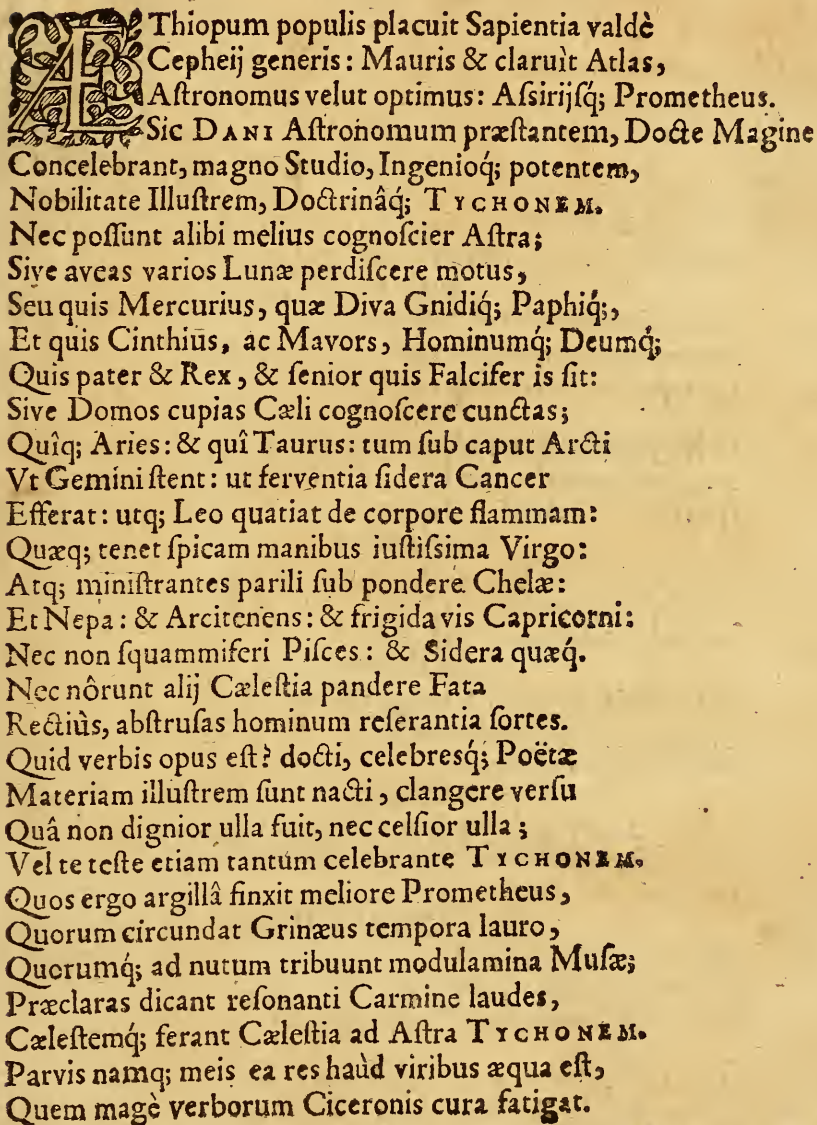 ÆThiopum populis placuit Sapientia valdè
Cepheij generis: Mauris & claruìt Atlas,
Aſtronomus velut optimus: Aſsirijſq́; Prometheus.
Sic DANI Aſtronomum præſtantem, Docte Magine
Concelebrant, magno Studio, Ingenioq́; potentem,
Nobilitate Illuſtrem, Doctrinâq́; TYCHONEM.
Nec poſſunt alibi melius cognoſcier Aſtra;
Sive aveas varios Lunæ perdiſcere motus,
Seu quis Mercurius, quæ Diva Gnidiq́; Paphiq́;,
Et quis Cinthiùs, ac Mavors, Hominumq́; Deumq́;
Quis pater & Rex, & ſenior quis Falcifer is ſit:
Sive Domos cupias Cæli cognoſcere cunctas;
Quîq; Aries: & quî Taurus: tum ſub caput Arcti
Vt Gemini ſtent: ut ferventia ſidera Cancer
Efferat: utq; Leo quatiat de corpore flammam:
Quæq; tenet ſpicam manibus iuſtiſsima Virgo:
Atq; miniſtrantes parili ſub pondere Chelæ:
Et Nepa: & Arcitenens: & frigida vis Capricorni:
Nec non ſquammiferi Piſces: & Sidera quæq́.
Nec nôrunt alij Cæleſtia pandere Fata
Rectiùs, abſtruſas hominum reſerantia ſortes.
Quid verbis opus eſt? docti, celebresq́; Poëtæ
Materiam illuſtrem ſunt nacti, clangere verſu
Quâ non dignior ulla fuit, nec celſior ulla;
Vel te teſte etiam tantùm celebrante TYCHONEM.
Quos ergo argillâ finxit meliore Prometheus,
Quorum circundat Grinæus tempora lauro,
Quorumq́; ad nutum tribuunt modulamina Muſæ;
Præclaras dicant reſonanti Carmine laudes,
Cæleſtemq́; ferant Cæleſtia ad Aſtra TYCHONEM.
Parvis namq; meis ea res haùd viribus æqua eſt,
Quem magè verborum Ciceronis cura fatigat.